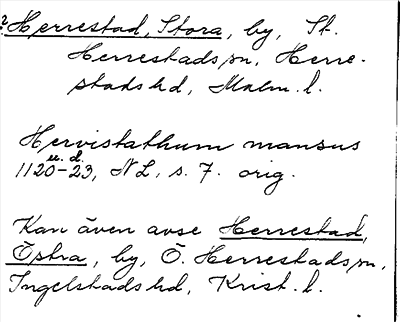 ? Herrestad, Stora, by, St.
Herrestads sn, Herre-
stads hd, Malm. l.
Hervistathum mansus
u. d.
1120-23, NL, s. 7. orig.
Kan även avse Herrestad,
Östra, by, Ö. Herrestads sn,
Ingelstads hd, Krist. l.